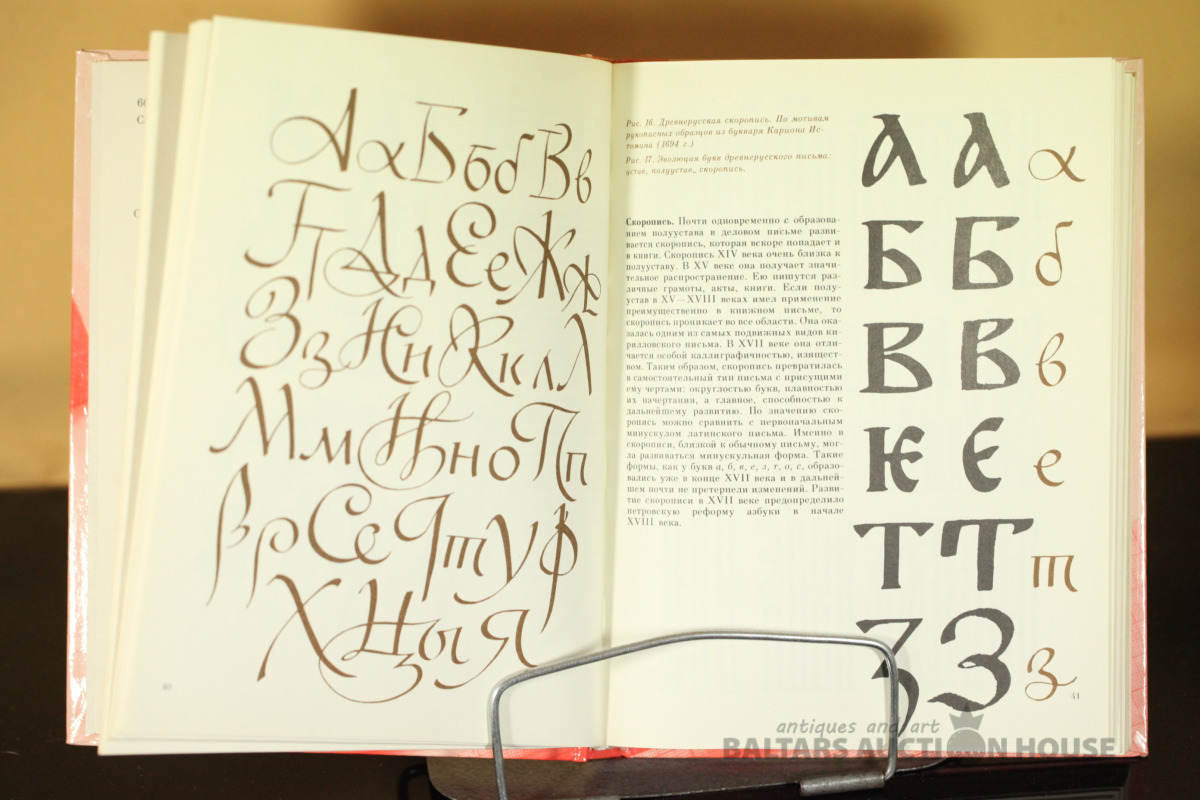 А а Б б б В в
Г т Д д Е е Ж ж
З з Н н К к л Л
М м Н н о П п
Р р С с Ч т У ф
Х Ц ы Я
40
Рис. 16. Древнерусская скоропись. По мотивам
рукописных образцов из букваря Кариона Ис-
томина (1694 г.)
Рис. 17. Эволюция букв древнерусского письма:
устав, полуустав, скоропись.
Скоропись. Почти одновременно с образова-
нием полуустава в деловом письме разви-
вается скоропись, которая вскоре попадает и
в книги. Скоропись XIV века очень близка к
полууставу. В XV веке она получает значи-
тельное распространение. Ею пишутся раз-
личные грамоты, акты, книги. Если полу-
устав в XV—XVIII веках имел применение
преимущественно в книжном письме, то
скоропись проникает во все области. Она ока-
залась одним из самых подвижных видов ки-
рилловского письма. В XVII веке она отли-
чается особой каллиграфичностью, изящест-
вом. Таким образом, скоропись превратилась
в самостоятельный тип письма с присущими
ему чертами: округлостью букв, плавностью
их начертания, а главное, способностью к
дальнейшему развитию. По значению ско-
ропись можно сравнить с первоначальным
минускулом латинского письма. Именно в
скорописи, близкой к обычному письму, мог-
ла развиваться минускульная форма. Такие
формы, как у букв а, б, в, е, з, т, о, с, образо-
вались уже в конце XVII века и в дальней-
шем почти не претерпели изменений. Разви-
тие скорописи в XVII веке предопределило
петровскую реформу азбуки в начале
XVIII века.
А А а
Б Б б
В В в
Ѥ Є е
Т Т т
З З з
41
antiques and art
BALTARS AUCTION HOUSE